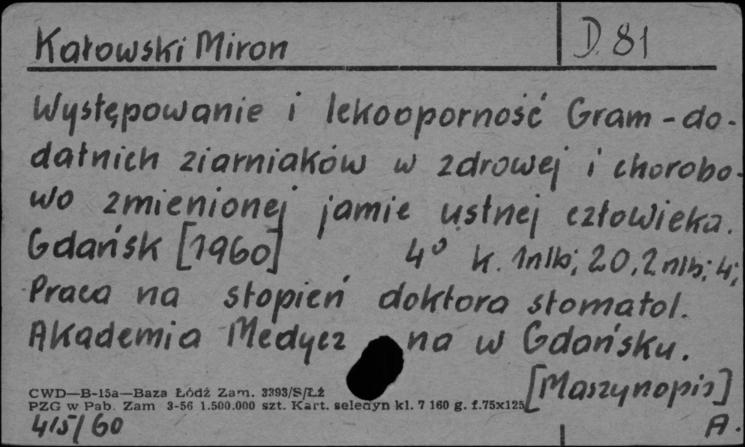 Kałowski Miron D. 81
Występowanie i lekooporność Gram-do-
datnich ziarniaków w zdrowej i chorobo-
wo zmienionej jamie ustnej człowieka.
Gdańsk [1960] 4° k. 1nlb; 20, 2nlb; 4;
Praca na stopień doktora stomatol.
Akademia Medycz na w Gdańsku.
[Maszynopis]
CWD—B-15a—Baza Łódź Zam. 3393/S/Łż
PZG w Pab. Zam 3-56 1.500.000 szt. Kart. seledyn kl. 7 160 g. f.75x125
415/60 A.